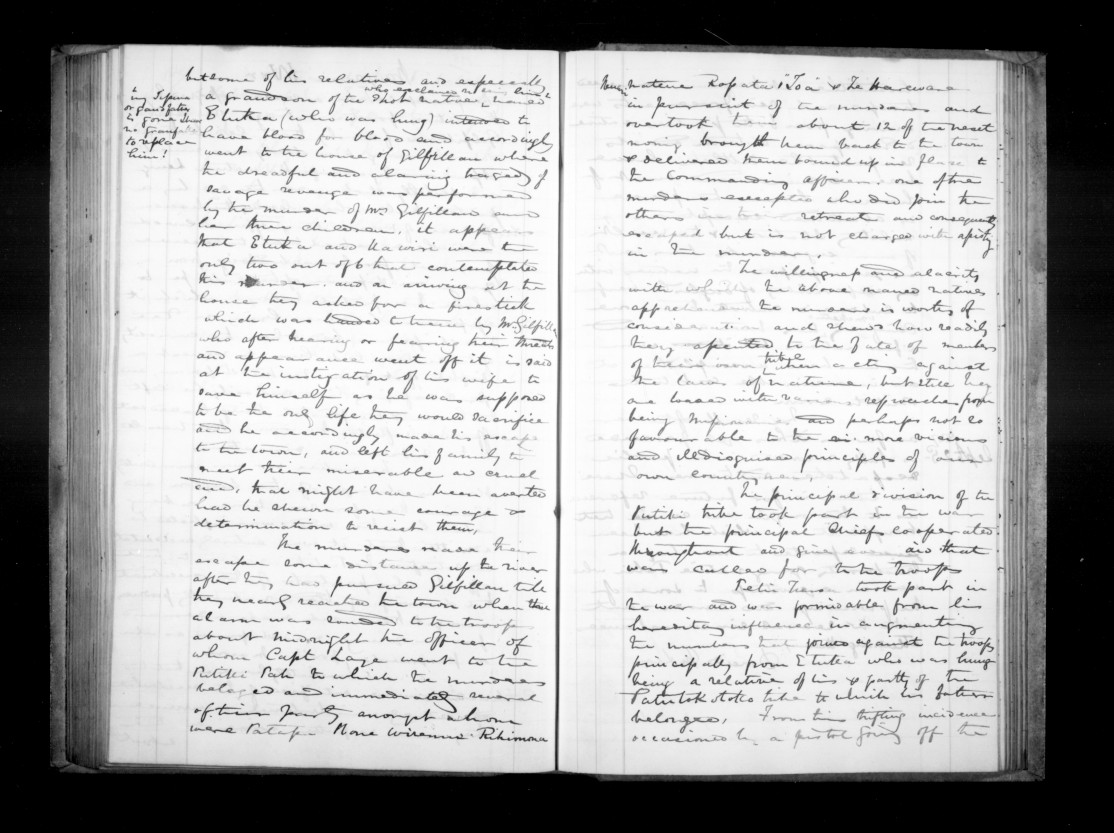 but some of his relatives and especially
who exclaimed
a grandson of the shot native named
"my Tepuna
or grandfather
is gone
no grandfather
to replace
him!
Etuka (who was hung) intended to
have blood for blood and accordingly
went to the house of Gilfillan where
the dreadful and alarming tragedy of
savage revenge was performed
by the murder of Mrs Gilfillan and
her three children. it appears
that Etuka and Hawiri were the
only two out of 6 that contemplated
this murder. and on ariving at the
house they asked for a firestick
which was handed to them by Mr Gilfillan
who after hearing or fearing their threats
and appearance went off it is said
at the instigation of his wife to
save himself as he was supposed
to be the only life they would sacrifice
and he accordingly made his escape
to the town, and left his family to
meet their miserable and cruel
end, that might have been averted
had he shewn some courage &
determination to resist them.
The murderers made their
escape some distance up the river
after they had pursued Gilfillan till
they nearly reached the town when the
alarm was sounded to the troops
about midnight the officers of
whom Capt Laye went to the
Putiki Pah to which the murderers
belonged and immediately several
of their party amongst whom
were Rone Wiremu Rihimona
natene Ropata Toa & Te Hareware
in pursuit of the murderers and
overtook them about 12 of the next
morning brought them back to the town
& delivered them bound up in flax to
the Commanding officer. one of the
murderers excepted who did join the
others in their retreat and consequently
escaped but is not charged with
in the murder.
The willingness and alacrity
with which the above named natives
apprehended the murderers is worthy of
consideration and shews how readily
they assented to the fate of members
tribe
of their own when acting against
the laws of nature, but still they
are loaded with various reproaches from
being Missionaries, and perhaps not so
favourable to the more vicious
and ill disguised principles of our
own countrymen.
The principal division of the
Putiki tribe took part in the war
but the principal Chiefs cooperated
throughout and gave every aid that
was called for to the troops
took part in
the war and was formidable from his
hereditary influence in augmenting
the numbers that joined against the troops
principally from Etuka who was hung
being a relative of his & partly of the
Patutokotoko tribe to which his father
belonged. From this trifling incidence
occasioned by a pistol going off the